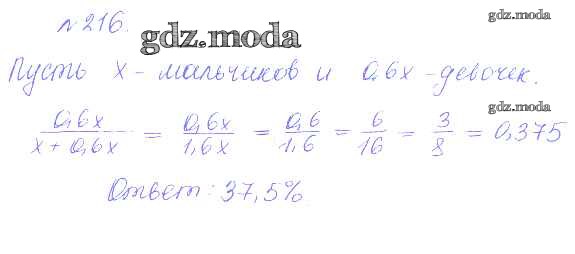 №216.
gdz.moda
gdz.moda
Пусть x - мальчиков и 0,6x - девочек.
gdz.moda
0,6x / x + 0,6x = 0,6x / 1,6x = 0,6 / 1,6 = 6 / 16 = 3 / 8 = 0,375
Ответ: 37,5%.